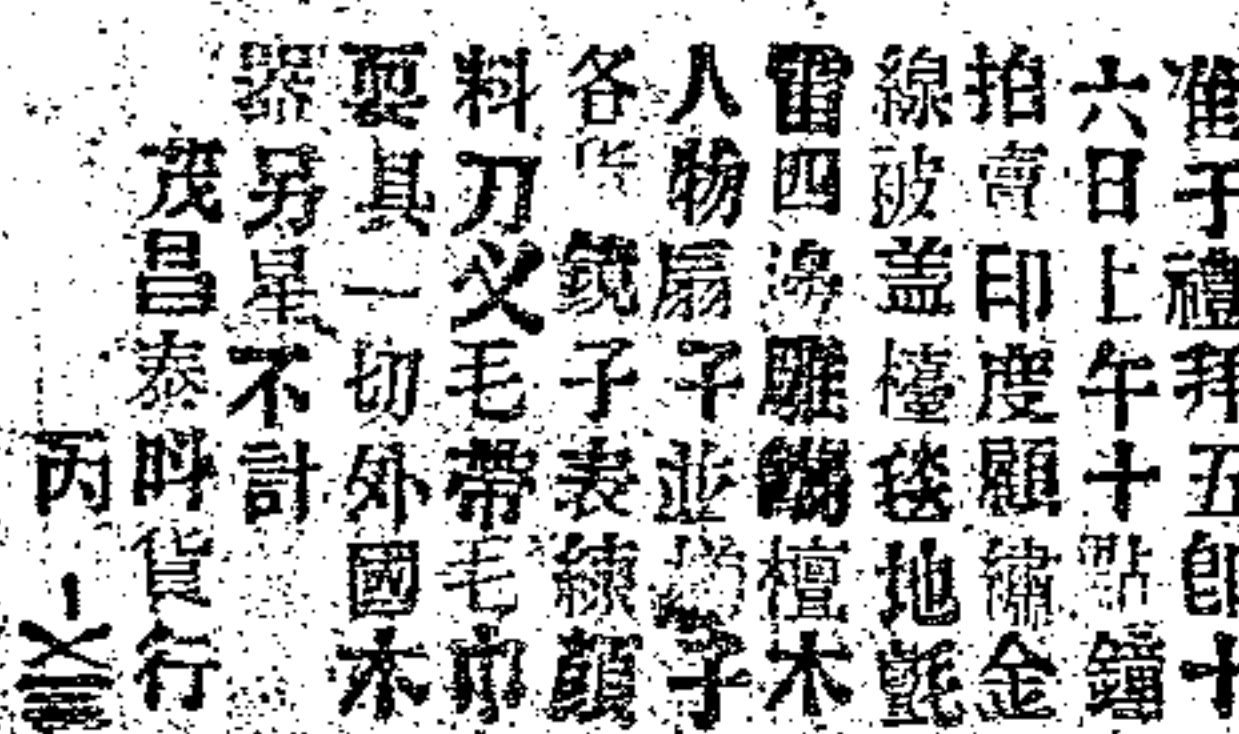 准于禮拜五卽十
六日上午十點鐘
拍賣印度顧繡金
線披盖檯毯地氈
雷四邊雕鶴檀木
人物扇子並子
各貨鏡子表練顏
料刀义毛帶毛巾
耍具一切外國木
器另星不計
茂昌泰呌貨行
丙 〡〤三